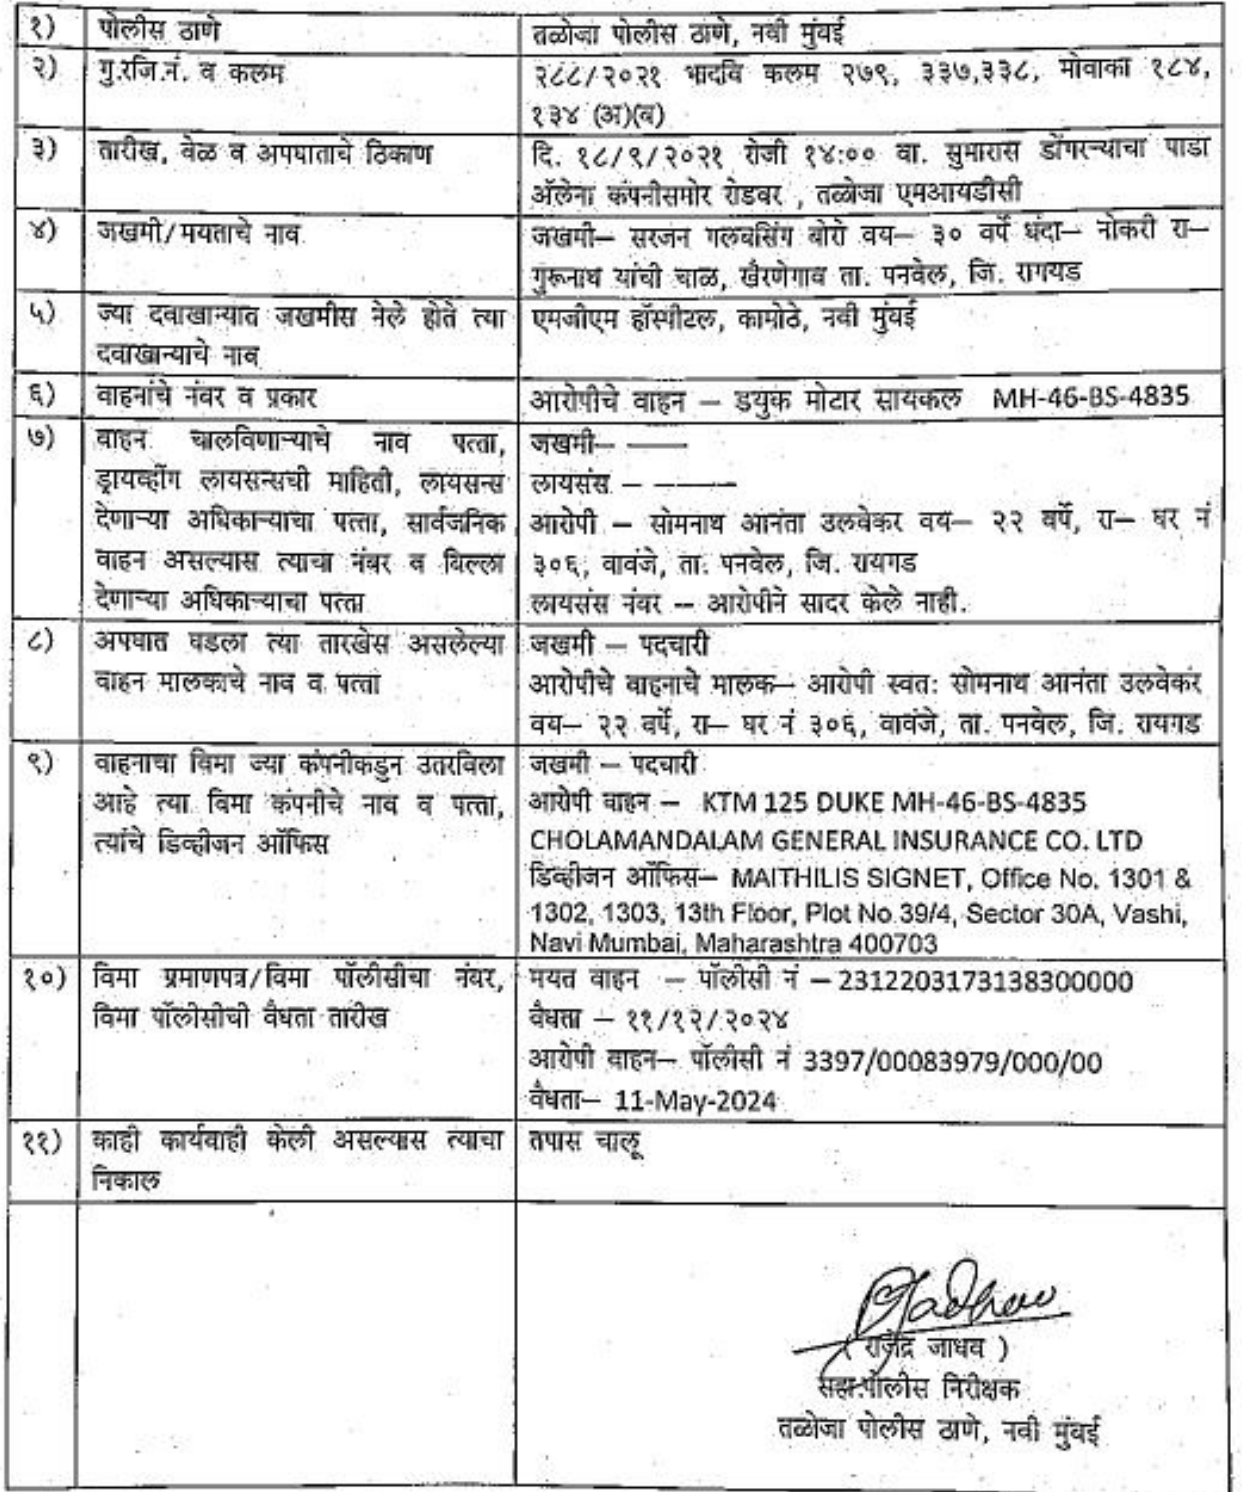 १) पोलीस ठाणे तळोजा पोलीस ठाणे, नवी मुंबई
२) गु.रजि.नं. व कलम २८८/२०२१ भादवि कलम २७९, ३३७,३३८, मोवाका १८४,
१३४ (अ)(ब)
३) तारीख, वेळ व अपघाताचे ठिकाण दि. १८/९/२०२१ रोजी १४:०० वा. सुमारास डोंगरऱ्याचा पाडा
ॲलेना कंपनीसमोर रोडवर , तळोजा एमआयडीसी
४) जखमी/मयताचे नाव जखमी— सरजन गलबसिंग बोरो वय— ३० वर्षे धंदा— नोकरी रा—
गुरूनाथ यांची चाळ, खैरणेगाव ता. पनवेल, जि. रागयड
५) ज्या दवाखान्यात जखमीस नेले होते त्या एमजीएम हॉस्पीटल, कामोठे, नवी मुंबई
दवाखान्याचे नाव
६) वाहनांचे नंबर व प्रकार आरोपीचे वाहन — डयुक मोटार सायकल MH-46-BS-4835
७) वाहन चालविणाऱ्याचे नाव पत्ता, जखमी— ——
ड्रायव्हींग लायसन्सची माहिती, लायसन्स लायसंस — ———
देणाऱ्या अधिकाऱ्याचा पत्ता, सार्वजनिक आरोपी — सोमनाथ आनंता उलवेकर वय— २२ वर्षे, रा— घर नं
वाहन असल्यास त्याचा नंबर व बिल्ला ३०६, वावंजे, ता. पनवेल, जि. रायगड
देणाऱ्या अधिकाऱ्याचा पत्ता लायसंस नंबर — आरोपीने सादर केले नाही.
८) अपघात घडला त्या तारखेस असलेल्या जखमी — पदचारी
वाहन मालकाचे नाव व पत्ता आरोपीचे वाहनाचे मालक— आरोपी स्वतः सोमनाथ आनंता उलवेकर
वय— २२ वर्षे, रा— घर नं ३०६, वावंजे, ता. पनवेल, जि. रायगड
९) वाहनाचा विमा ज्या कंपनीकडुन उतरविला जखमी — पदचारी
आहे त्या विमा कंपनीचे नाव व पत्ता, आरोपी वाहन — KTM 125 DUKE MH-46-BS-4835
त्यांचे डिव्हीजन ऑफिस CHOLAMANDALAM GENERAL INSURANCE CO. LTD
डिव्हीजन ऑफिस— MAITHILIS SIGNET, Office No. 1301 &
1302, 1303, 13th Floor, Plot No.39/4, Sector 30A, Vashi,
Navi Mumbai, Maharashtra 400703
१०) विमा प्रमाणपत्र/विमा पॉलीसीचा नंबर, मयत वाहन — पॉलीसी नं — 2312203173138300000
विमा पॉलीसीची वैधता तारीख वैधता — ११/१२/२०२४
आरोपी वाहन— पॉलीसी नं 3397/00083979/000/00
वैधता— 11-May-2024
११) काही कार्यवाही केली असल्यास त्याचा तपास चालू
निकाल
( राजेंद्र जाधव )
सहा.पोलीस निरीक्षक
तळोजा पोलीस ठाणे, नवी मुंबई